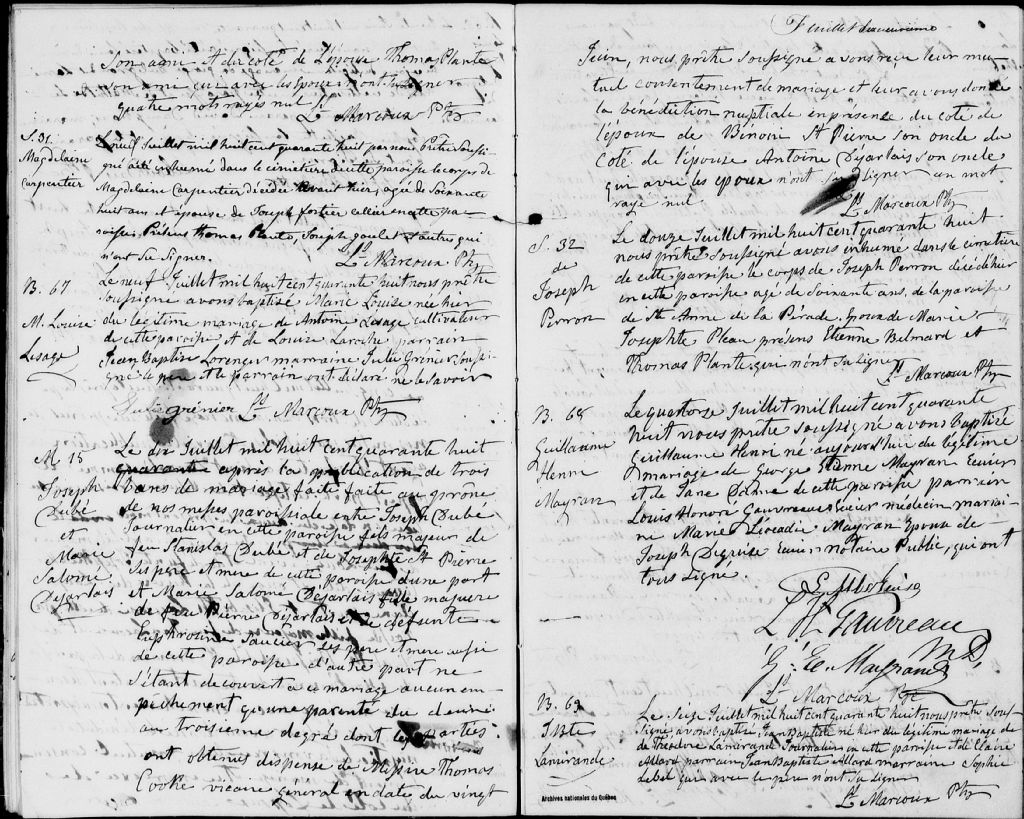 son ami et du coté de l'épouse Thomas Plante
son ami qui avec les Epoux n'ont su signer
quatre mots rayés nul Ls Marcoux Ptre
S. 31.
Magdelaine
Carpentier
Le neuf Juillet mil huit cent quarante huit par nous Prêtre soussi-
gné a été inhumé dans le cimetière de cette paroisse le corps de
Magdelaine Carpentier décédée avant hier, agée de soixante
huit ans et épouse de Joseph fortier cellier en cette pa-
roisse. Présens Thomas Plante, Joseph goulet et autre qui
n'ont su signer. Ls Marcoux Ptre
B. 67
M. Louise
Lesage
Le neuf Juillet mil huit cent quarante huit nous prêtre
soussigné avons baptisé Marie Louise née hier
du légitime mariage de Antoine Lesage cultivateur
de cette paroisse et de Louise Laroche parrain
Jean Baptise marraine Julie Grenier soussi-
gné le père et le parrain ont déclaré ne le savoir
Julie grénier Ls Marcoux Ptre
M 15
Joseph
Dubé
et
Marie
Salomé
Déjarlais
Le dix Juillet mil huit cent quarante huit
quarante après la publication de trois
bans de mariage faite faite au prône
de nos messes paroissiale entre Joseph Dubé
Journalier en cette paroisse fils majeur de
feu Stanislas Dubé et de Josephte St Pierre
ses père et mère de cette paroisse d'une part
et Marie Salomé Déjarlais fille majeure
de feu Pierre Déjarlais et de défunte
Euphrosine Saucier ses père et mère aussi
de cette paroisse d'autre part ne
s'étant découvert à ce mariage aucun em-
pêchement qu'une parenté du
au troisième degré dont les parties
ont obtenus dispense de Messire Thomas
Cooke vicaire général en date du vingt
Feuillet
Juin, nous prêtre soussigné avons reçu leur mu-
tuel consentement de mariage et leur avons donné
la bénédiction nuptiale en présence du coté de
l'époux de Bénoni St Pierre son oncle du
coté de l'épouse Antoine Déjarlais son oncle
qui avec les epoux n'ont su signer un mot
rayé nul Ls Marcoux Ptre
S. 32
de
Joseph
Perron
Le douze Juillet mil huit cent quarante huit
nous prêtre soussigné avons inhumé dans le cimetière
de cette paroisse le corps de Joseph Perron décédé hier
en cette paroisse agé de soixante ans, de la paroisse
de Ste Anne de la Perade. Epoux de Marie
Josephte Pleau présens Etienne Belmard et
Thomas Plante qui n'ont su signer
Ls Marcoux Ptre
B. 68
Guillaume
Henri
Mayran
Le quatorze Juillet mil huit cent quarante
huit nous prêtre soussigné avons baptisé
Guillaume Henri né aujourd'hui du légitime
mariage de George Etienne Mayran Ecuier
et de Jane de cette paroisse parrain
Louis Honoré Gauvreau Ecuier médecin marrai-
ne Marie Léocadie Mayran Epouse de
Joseph Ecuier notaire Public, qui ont
tous signé.
L H Gauvreau
M D,
G: E. Mayrand
Ls Marcoux Ptre
B. 69
J Bte
Lamirande
Le seize Juillet mil huit cent quarante huit nous prêtre sous-
signé avons baptisé Jean Baptiste né hier du légitime mariage de
de Theodore Lamirande Journalier en cette paroisse et de Claire
Allard parrain Jean Baptiste Allard marraine Sophie
Lebel qui avec le père n'ont su signer
Ls Marcoux Ptre
Archives nationales du Québec